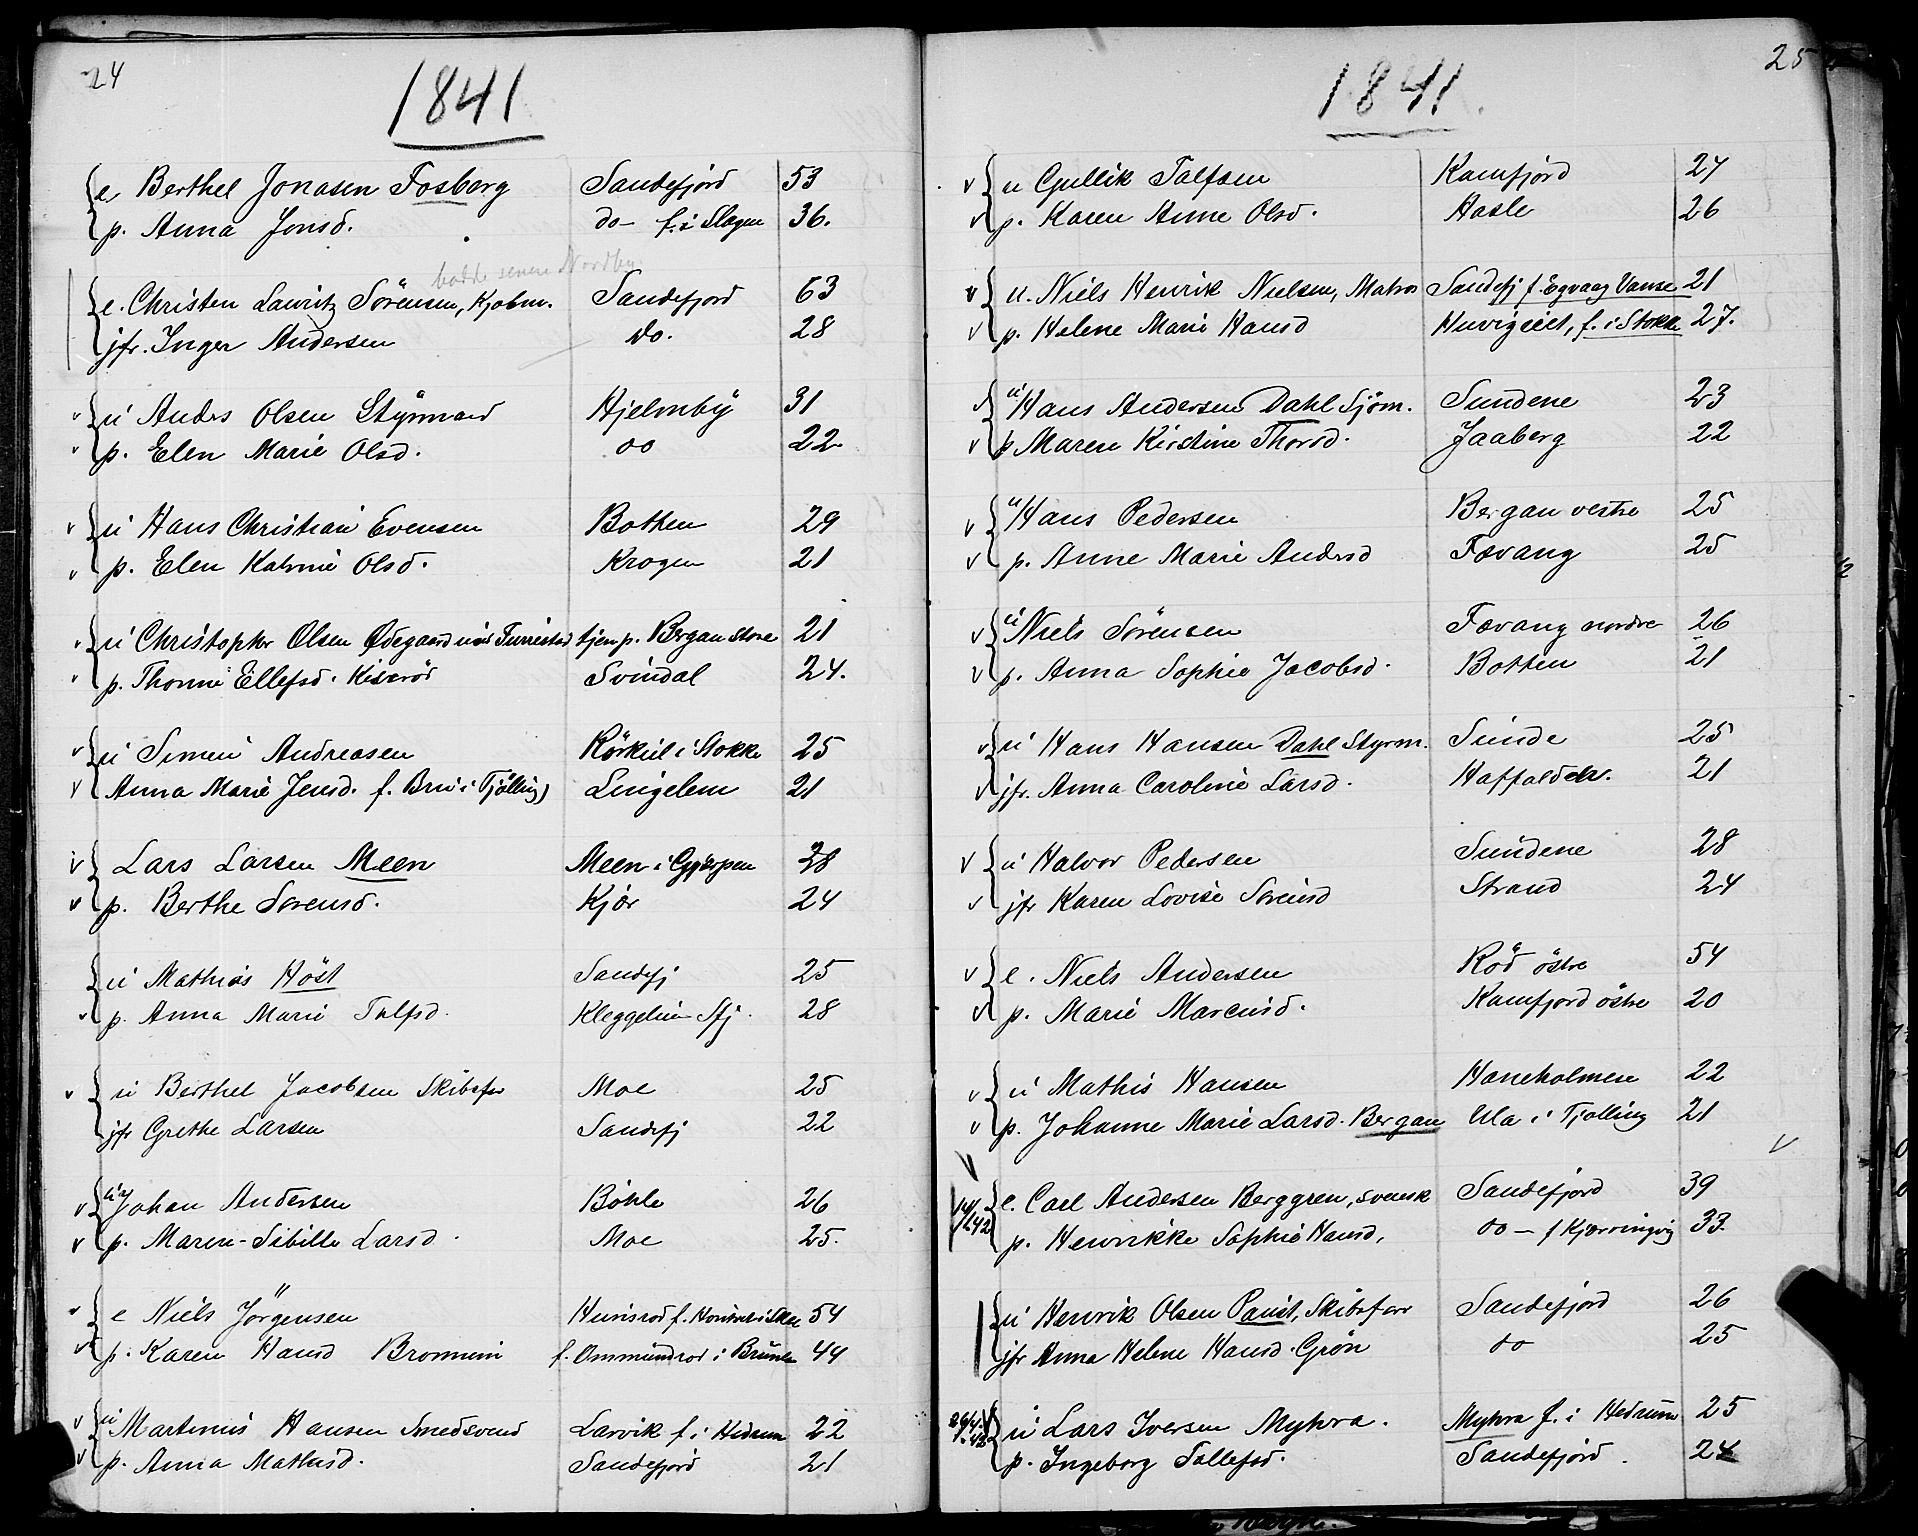 24
1841
e. Berthel Jonasen Fosberg Sandefjord 53
p. Anna Jonsd. do- f. i Slagen 36.
Nordby
e. Christen Lauritz Sörensen, Kjobm. Sandefjord 63
jfr. Inger Andersen Do. 28
v u Anders Olsen Styrmand Hjelmby 31
v p. Elen Marie Olsd. oo 22
v u Hans Christian Evensen Botten 29
v p. Elen Katrine Olsd. Krogen 21
v u Christopher Olsen Ødegaard Furrestad tjen p. Bergan store 21
v p. Thorine Ellefsd. Kiseröd Svindal 24.
v u Simen Andreasen Rörkul i Stokke 25
v Anna Marie Jensd. f. Bru i Tjölling) Lingelem 21
v Lars Larsen Meen Meen i Gjerpen 28
v p. Berthe Sorensd. Kjör 24
u Mathias Höst Sandefj 25
v p. Anna Marie Tolfsd. Kleggelien Sfj. 28
v u Berthel Jacobsen Skibsfør Moe 25
jfr Grethe Larsen Sandefj 22
v u Johan Andersen Böhle 26
v p. Maren-Sibille Larsd. Moe 25.
v e Niels Jörgensen Hunsrod f. i Skee 54
v p. Karen Hansd Bromnin f. Ommundrod i Brunla 44
v u Martinius Hansen Smedsvend Larvik f. i Hedrum 22
v p. Anna Mathisd. Sandefjord 21
25
1841.
v u Gullik Tolfsen Kamfjord 27
v p. Karen Anne Olsd. Hasle 26
v u. Niels Henrik Nielsen, Matros Sandefj f. Egvaag Vanse 21
v p. Helene Marie Hansd Huvigeiet, f. i Stokke 27.
v u Hans Andersen Dahl Sjöm. Sundene 23
v p Maren Kirstine Thorsd. Jaaberg 22
v u Hans Pedersen Bergan vestre 25
v p. Anne Marie Andersd Fævang 25
v u Niels Sörensen Fævang nordre 26
v p. Anna Sophie Jacobsd. Botten 21
v u Hans Hansen Dahl Styrm. Sunde 25
v jfr. Anna Caroline Larsd. Haffaldelv. 21
v u Halvor Pedersen Sundene 28
v jfr Karen Lovise Sörensd Strand 24
v e. Niels Andersen Röd östre 54
v p. Marie Marcusd. Kamfjord östre 20
v u Mathis Hansen Haneholmen 22
v p. Johanne Marie Larsd. Bergan Ula i Tjolling 21
v
v
e. Carl Andersen Berggren, svensk Sandefjord 39
p. Henrikke Sophie Hansd, oo - f Kjærringvig 33.
u Henrik Olsen Paust, Skibsfør Sandefjord 26
jfr Anna Helene Hansd. Grön oo 25
v u Lars Iversen Myhra. Myhra f. i Hedrum 25
p. Ingeborg Tollefsd. Sandefjord. 24